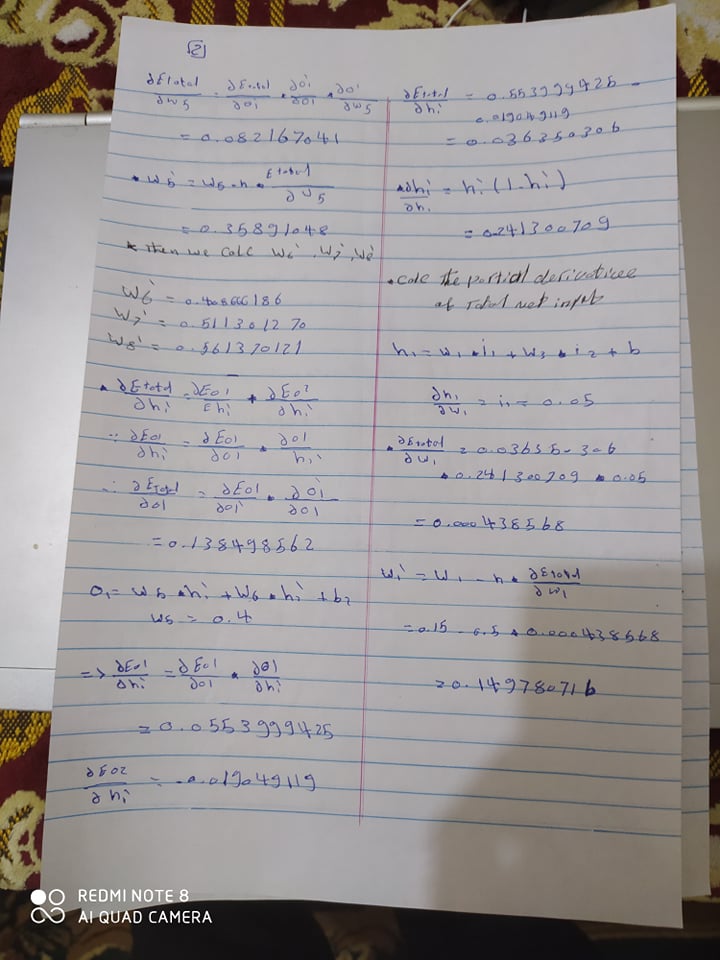 2
∂Etotal/∂w5 = ∂Etotal/∂o1' * ∂o1'/∂o1 * ∂o'/∂w5
= 0.082167041
* w5' = w5 - n * Etotal/∂w5
= 0.35891048
* then we calc w6', w7', w8'
w6' = 0.408666186
w7' = 0.511301270
w8' = 0.561370121
* ∂Etotal/∂h1' = ∂Eo1/Eh1' + ∂Eo2/∂h1'
∵ ∂Eo1/∂h1' = ∂Eo1/∂o1 * ∂o1/h1'
∴ ∂Etotal/∂o1 = ∂Eo1/∂o1' * ∂o1'/∂o1
= 0.138498562
O1 = w5 * h1' + w6 * h2' + b2
w5 = 0.4
=> ∂Eo1/∂h1' = ∂Eo1/∂o1 * ∂o1/∂h1'
= 0.0553999425
∂Eo2/∂h1' = -0.019049119
∂Etotal/∂h1' = 0.553999425 -
0.019049119
= 0.036350306
* ∂h1'/∂h1 = h1' (1-h1')
= 0.241300709
* calc the partial derivatives
of total net input
h1 = w1 * i1 + w3 * i2 + b
∂h1/∂w1 = i1 = 0.05
* ∂Etotal/∂w1 = 0.036350306
* 0.241300709 * 0.05
= 0.000438568
w1' = w1 - n * ∂Etotal/∂w1
= 0.15 - 0.5 * 0.000438568
= 0.149780716
REDMI NOTE 8
AI QUAD CAMERA